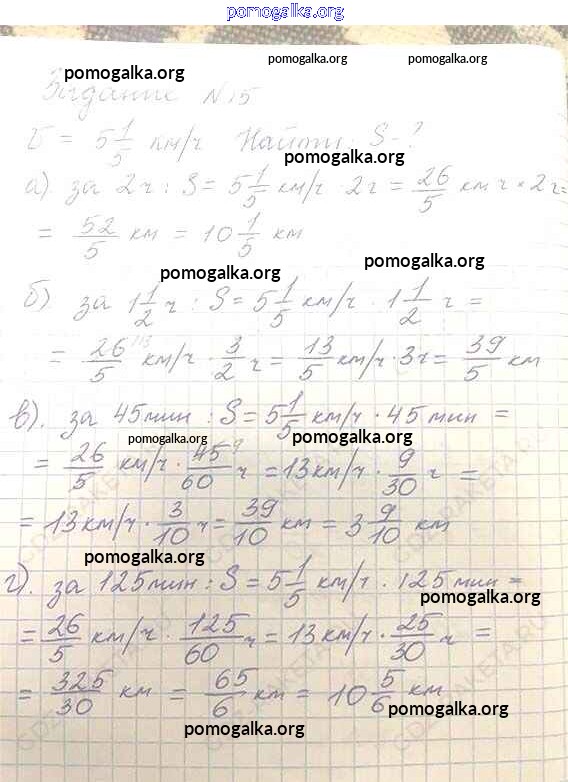 pomogalka.org
pomogalka.org
pomogalka.org
pomogalka.org
Задание N15
V = 5 1/5 км/ч Найти: S-?
pomogalka.org
а) за 2ч : S = 5 1/5 км/ч 2ч = 26/5 км ч × 2ч =
= 52/5 км = 10 1/5 км
pomogalka.org
pomogalka.org
б) за 1 1/2 ч : S = 5 1/5 км/ч · 1 1/2 ч =
= 26/5 км/ч · 3/2 ч = 13/5 км/ч · 3ч = 39/5 км
в). за 45 мин : S = 5 1/5 км/ч · 45 мин =
pomogalka.org
pomogalka.org
= 26/5 км/ч · 45/60 ч = 13 км/ч · 9/30 ч =
= 13 км/ч · 3/10 ч = 39/10 км = 3 9/10 км
pomogalka.org
г). за 125 мин : S = 5 1/5 км/ч · 125 мин =
pomogalka.org
= 26/5 км/ч · 125/60 ч = 13 км/ч · 25/30 ч =
= 325/30 км = 65/6 км = 10 5/6 км
pomogalka.org
pomogalka.org